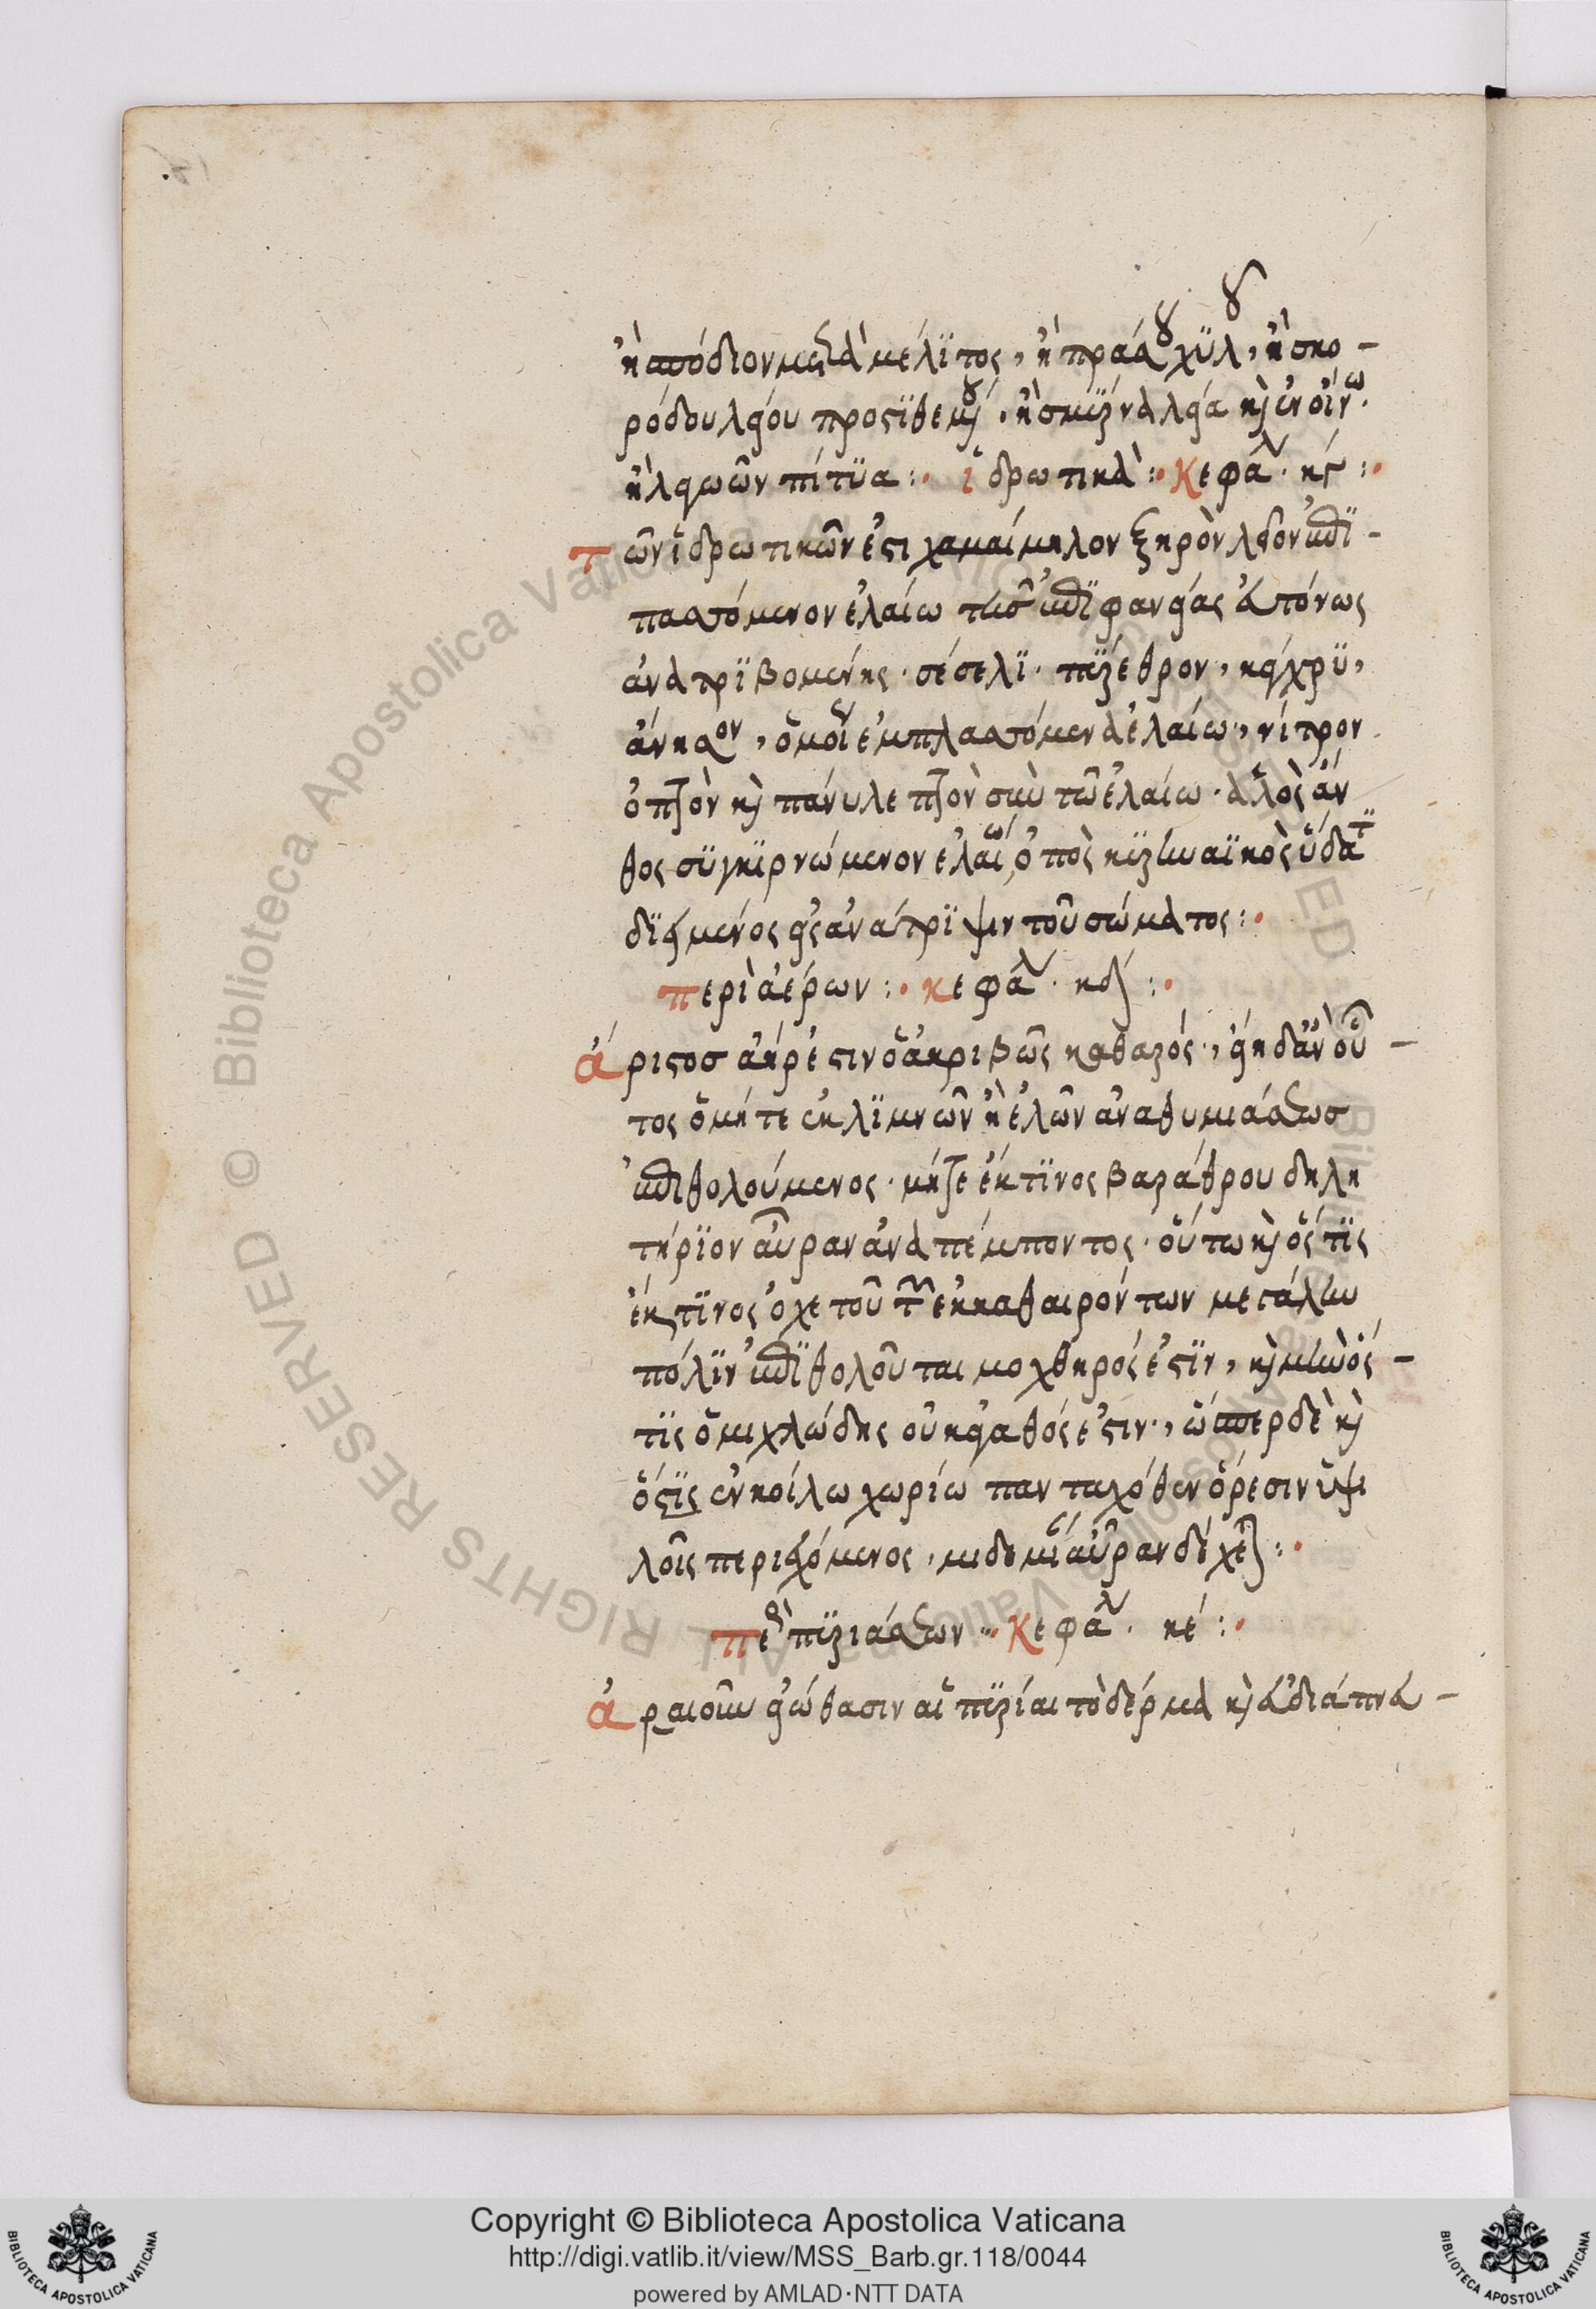 ἢ σπόδιον μετὰ μέλιτος, ἢ πράσου χυλοῦ, ἢ σκο-
ρόδου λείου προστιθεμένου. ἢ σμύρνα λεία καὶ ἐν οἴνω.
ἢ λαγωῶν πιτύα :· ἱδρωτικὰ :· Κεφάλ. κγ :·
τῶν ἱδρωτικῶν ἐστι χαμαίμηλον ξηρὸν λεῖον ἐπι-
παττόμενον ἐλαίω τῆς ἐπιφανείας ἀπόνως
ἀνατριβομένης. σέσελι. πύρεθρον, κάχρυ,
ἄνησον, ὁμοίως ἐμπλαττόμενα ἐλαίω, νίτρον
ὀπτὸν καὶ πάνυ λεπτὸν σὺν τῶ ἐλαίω. ἁλὸς ἄν
θος συγκιρνώμενον ἐλαίω, ὀπὸς κυρηναϊκὸς ὕδατι
διειμένος εἰς ἀνάτριψιν τοῦ σώματος :·
περὶ ἀέρων :· κεφάλ. κδ :·
ἄριστος ἀήρ ἐστιν ὁ ἀκριβῶς καθαρός, εἴη δ' ἂν οὗ-
τος ὁ μήτε ἐκ λιμνῶν ἢ ἑλῶν ἀναθυμιάσεως
ἐπιθολούμενος. μήτε ἔκ τινος βαράθρου δηλη
τήριον αὔραν ἀναπέμποντος. οὕτω καὶ ὅστις
ἔκ τινος ὀχετοῦ τῶν ἐκκαθαιρόντων μεγάλην
πόλιν ἐπιθολοῦται μοχθηρός ἐστιν, καὶ μὴν ὅς-
τις ὁμιχλώδης οὐκ ἀγαθός ἐστιν, ὥσπερ δὲ καὶ
ὅστις ἐν κοίλω χωρίω πανταχόθεν ὄρεσιν ὑψι
λοῖς περιεχόμενος, μιδεμίαν αὔραν δέχεται :·
περὶ πυριάσεων :· Κεφάλ. κέ :·
ἀραιοῦν εἰώθασιν αἱ πυρίαι τὸ δέρμα καὶ ἀδιάπνευ-
Copyright © Biblioteca Apostolica Vaticana
http://digi.vatlib.it/view/MSS_Barb.gr.118/0044
powered by AMLAD·NTT DATA